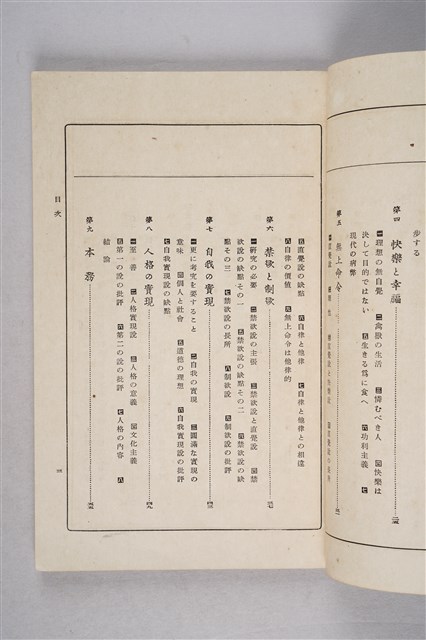 歩する
第四　快樂と幸福
一理想の無自覺　二禽獸の生活　三憐むべき人　四快樂は
決して目的ではない　五生きる爲に食へ　六功利主義　七
現代の病弊
第五　無上命令
五直覺說の缺點　六自律と他律　七自律と他律との相違
八自律の價値　九無上命令は他律的
第六　禁欲と制欲
一硏究の必要　二禁欲說の主張　三禁欲說と直覺說　四禁
欲說の缺點その一　五禁欲說の缺點その二　六禁欲說の缺
點その三　七禁欲說の長所　八制欲說　九制欲說の批評
第七　自我の實現
一更に考究を要すること　二自我の實現　三圓滿な實現の
意味　四個人と社會　五道德の理想　六自我實現說の批評
七自我實現說の缺點
第八　人格の實現
一至善　二人格實現說　三人格の意義　四文化主義
五第一の說の批評　六第二の說の批評　七人格の內容　八
結論
第九　本務
目次